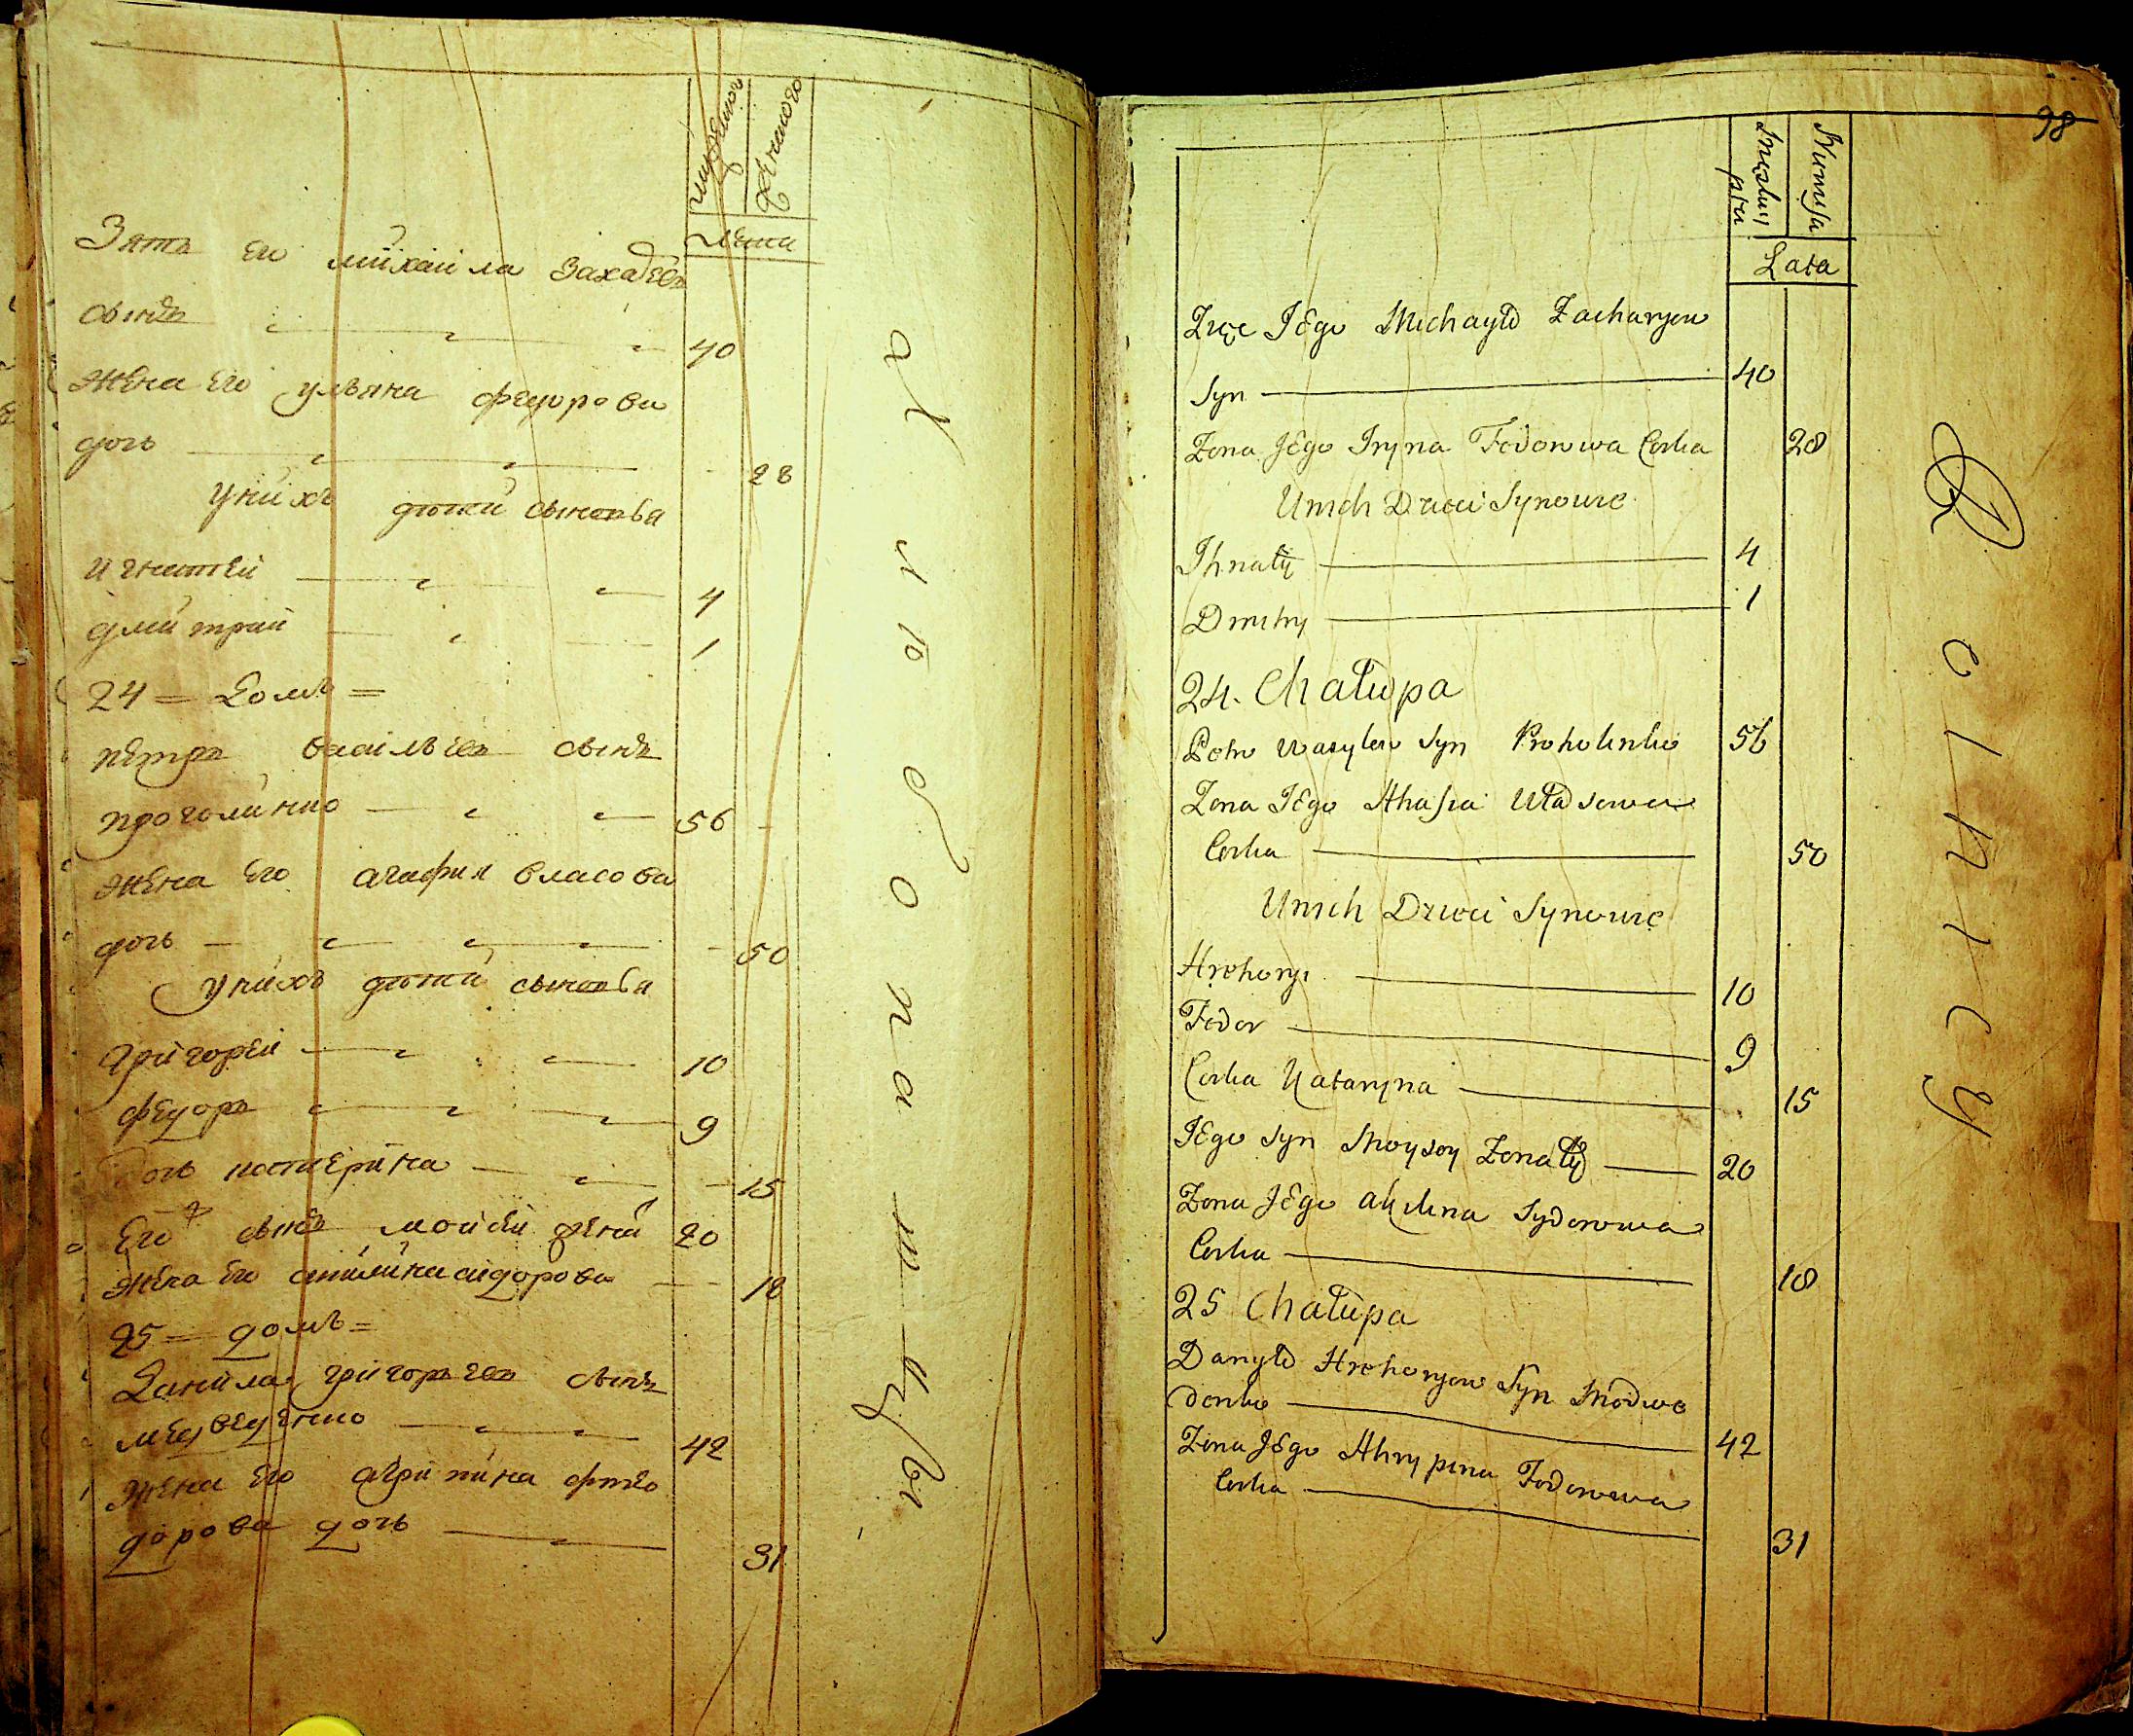 мужеска
женского
лета
Зять его михаила Захарёвъ
сынъ 40
жена его ульяна федорова
дочь 28
у нихъ дѣтей сыновья
игнатей 4
дмитрей 1
24 = Домъ =
петръ васильевъ сынъ
проголинко 56
жена его агафия власова
дочь 50
у нихъ дѣтей сыновья
григорей 10
федоръ 9
дочь катерина 15
его сынъ мойсей 20
жена его акилина сидорова 18
25 = домъ =
Данила григорьевъ сынъ
медведенко 42
жена его агрипина фтео
дорова дочь 31
хлѣбопашцы
98
Numesa
Lata
Zięc Jego Michayło Zacharyew
Syn 40
Zona Jego Iryna Fedorowa Corka 28
Unich Dzieci Synowie
Ihnaty 4
Dmitry 1
24. Chałupa
Petro Wasylew Syn Proholinko 56
Zona Jego Ahafia Ułasowa
Corka 50
Unich Dzieci Synowie
Hrehory 10
Fedor 9
Corka Kataryna 15
Jego Syn Moysey Zonaty 20
Zona Jego Akilina Sydorowa
Corka 18
25 Chałupa
Danyło Hrehoryew Syn Medwe
denko 42
Zona Jego Ahrypina Fedorowa
Corka 31
Rolnicy